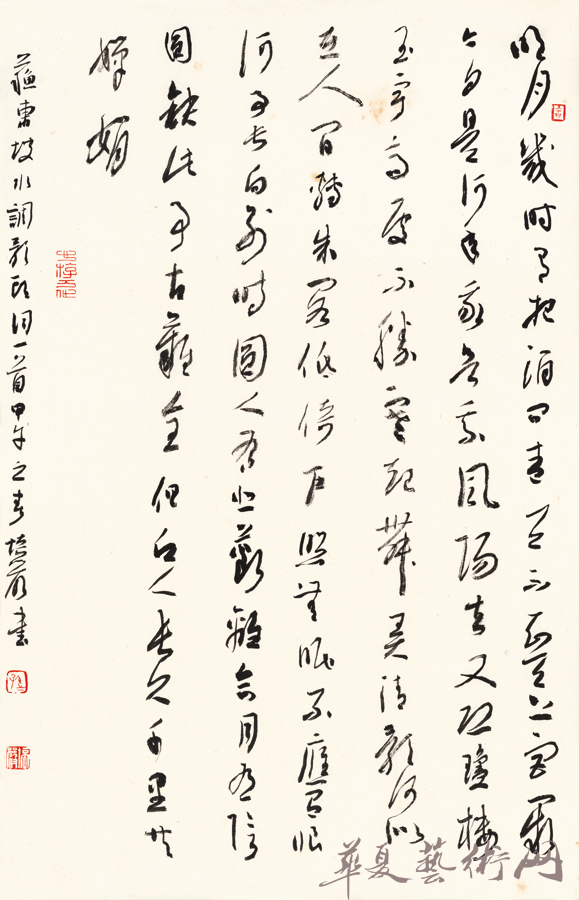 明月幾时有把酒问青天不知天上宫闕
今夕是何年我欲乘風歸去又恐瓊樓
玉宇高處不勝寒起舞弄清影何似
在人间轉朱閣低綺户照無眠不應有恨
何事長向别時圓人有悲歡離合月有陰
圓缺此事古難全但願人長久千里共
嬋娟
蘇東坡水調歌頭詞一首甲午之春培书
華夏藝術网